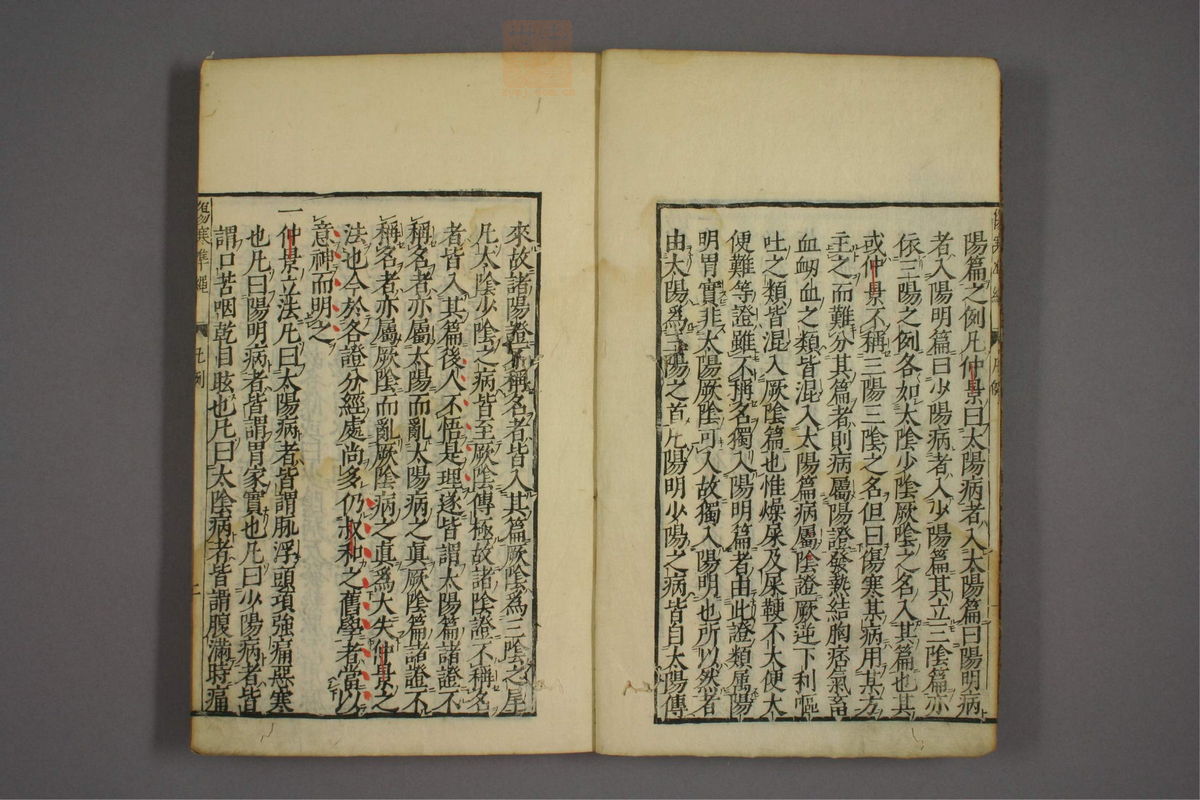 陽篇之例凡仲景曰太陽病者入太陽篇曰陽明病
者入陽明篇曰少陽病者入少陽篇其立三陰篇亦
依三陽之例各如太陰少陰厥陰之名入其篇也其
或仲景不稱三陽三陰之名但曰傷寒某病用某方
主之而難分其篇者則病屬陽證發熱結胸痞氣畜
血衂血之類皆混入太陽篇病屬陰證厥逆下利嘔
吐之類皆混入厥陰篇也惟燥屎及屎鞕不大便大
便難等證雖不稱名獨入陽明篇者由此證類屬陽
明胃實非太陽厥陰可入故獨入陽明也所以然者
由太陽爲三陽之首凡陽明少陽之病皆自太陽傳
來故諸陽證不稱名者皆入其篇厥陰爲三陰之尾
凡太陰少陰之病皆至厥陰傳極故諸陰證不稱名
者皆入其篇後人不悟是理遂皆謂太陽篇諸證不
稱名者亦屬太陽而亂太陽病之眞厥陰篇諸證不
稱名者亦屬厥陰而亂厥陰病之眞爲大失仲景之
法也今於各證分經處尚多仍叔和之舊學者當以
意神而明之
一仲景立法凡曰太陽病者皆謂脉浮頭項強痛惡寒
也凡曰陽明病者皆謂胃家實也凡曰少陽病者皆
謂口苦咽乾目眩也凡曰太陰病者皆謂腹滿時痛
傷寒準繩
凡例
二